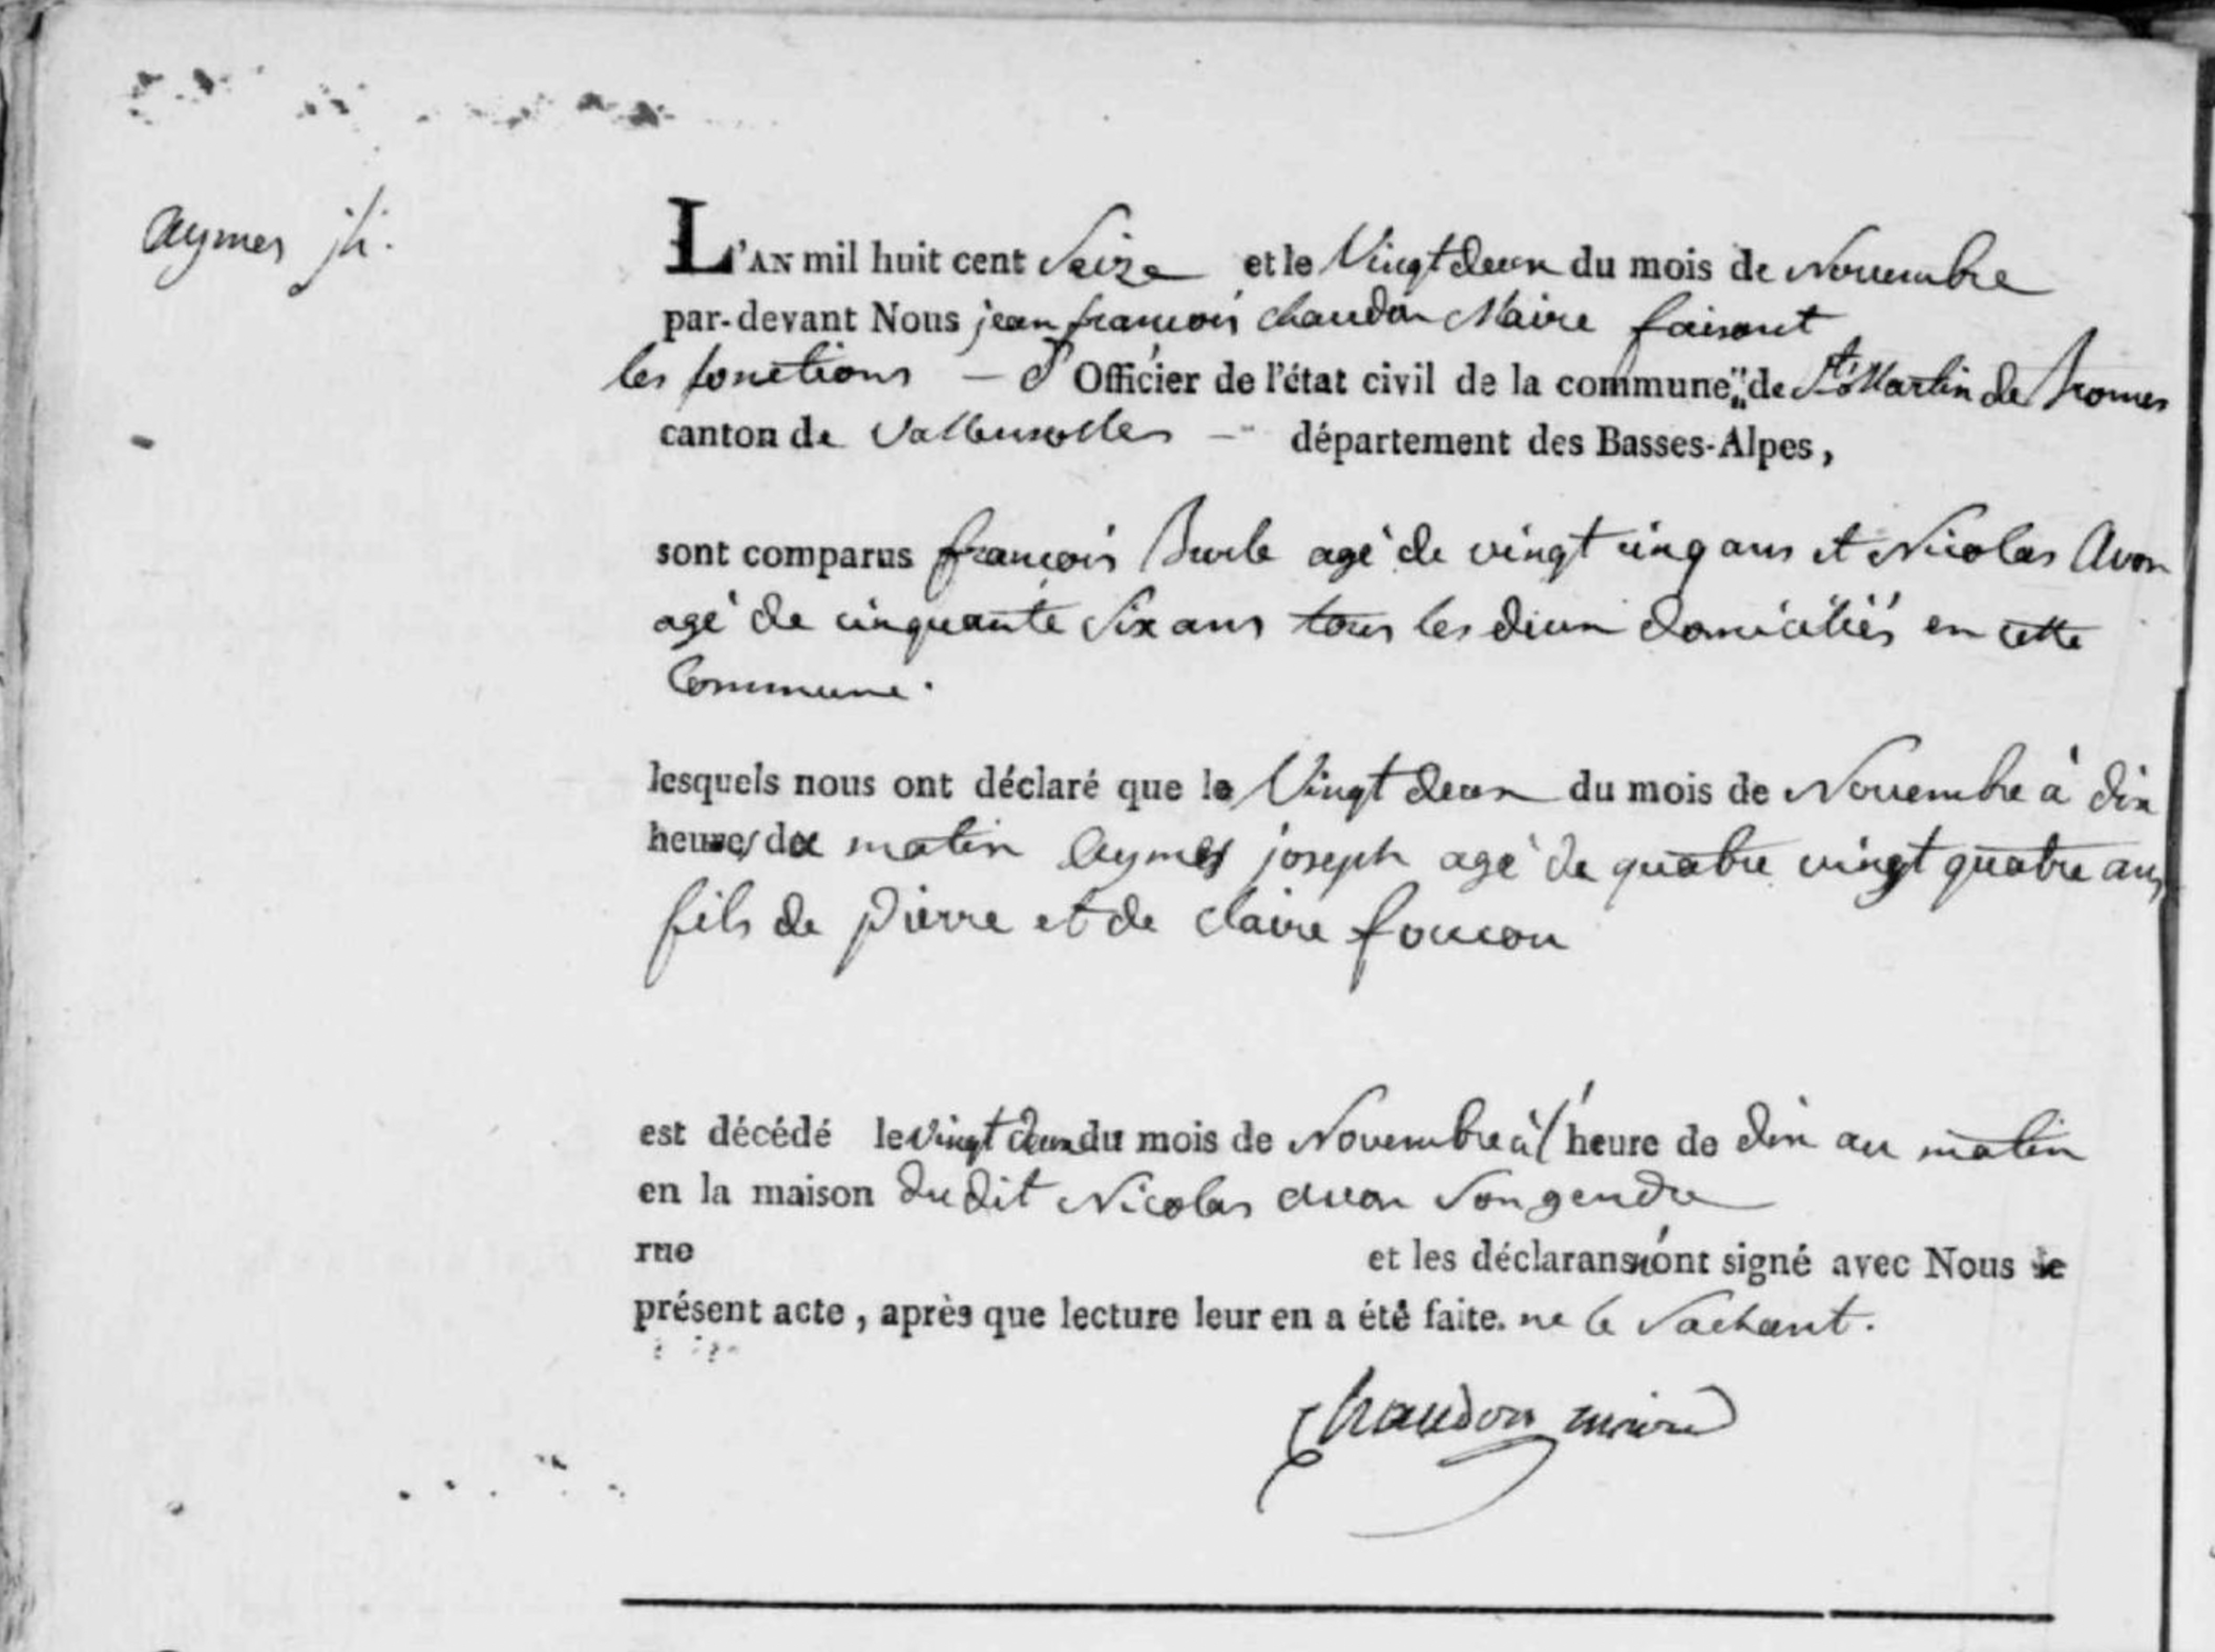 Aymes jh.
L'AN mil huit cent Seize et le Vingt deux du mois de Novembre
par-devant Nous jean françois chaudon Maire faisant
les fonctions — d'Officier de l'état civil de la commune de St Martin de Bromes
canton de Vallensolles — département des Basses-Alpes,
sont comparus françois Burle agé de vingt cinq ans et Nicolas Avon
agé de cinquante Six ans tous les deux domiciliés en cette
Commune.
lesquels nous ont déclaré que le Vingt deux du mois de Novembre à dix
heures du matin Aymes joseph agé de quatre vingt quatre ans
fils de pierre et de claire foucou
est décédé le vingt deux du mois de Novembre à l'heure de dix au matin
en la maison du dit Nicolas avon Son gendre
rue et les déclarans n'ont signé avec Nous le
présent acte, après que lecture leur en a été faite. ne le Sachant.
chaudon maire